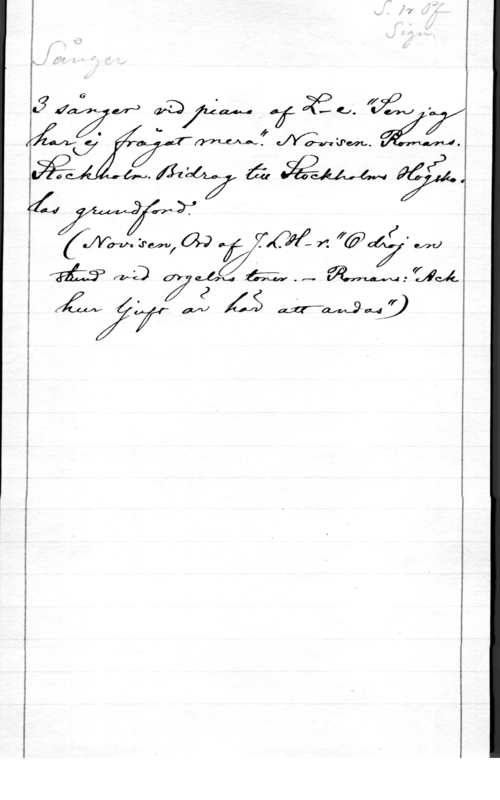 S. 1r Of
Sign.
Sånger
3 sånger vid piano af L-e. "Sen jag
har ej frågat mera". Novisen. Romans.
Stockholm. Bidrag till Stockholms Högsko-
las grundfond.
(Novisen, Ord af J. L. H-r. "O dröj en
stund vid orgelns toner. - Romans: "Ack
hur ljuft är här att andas")